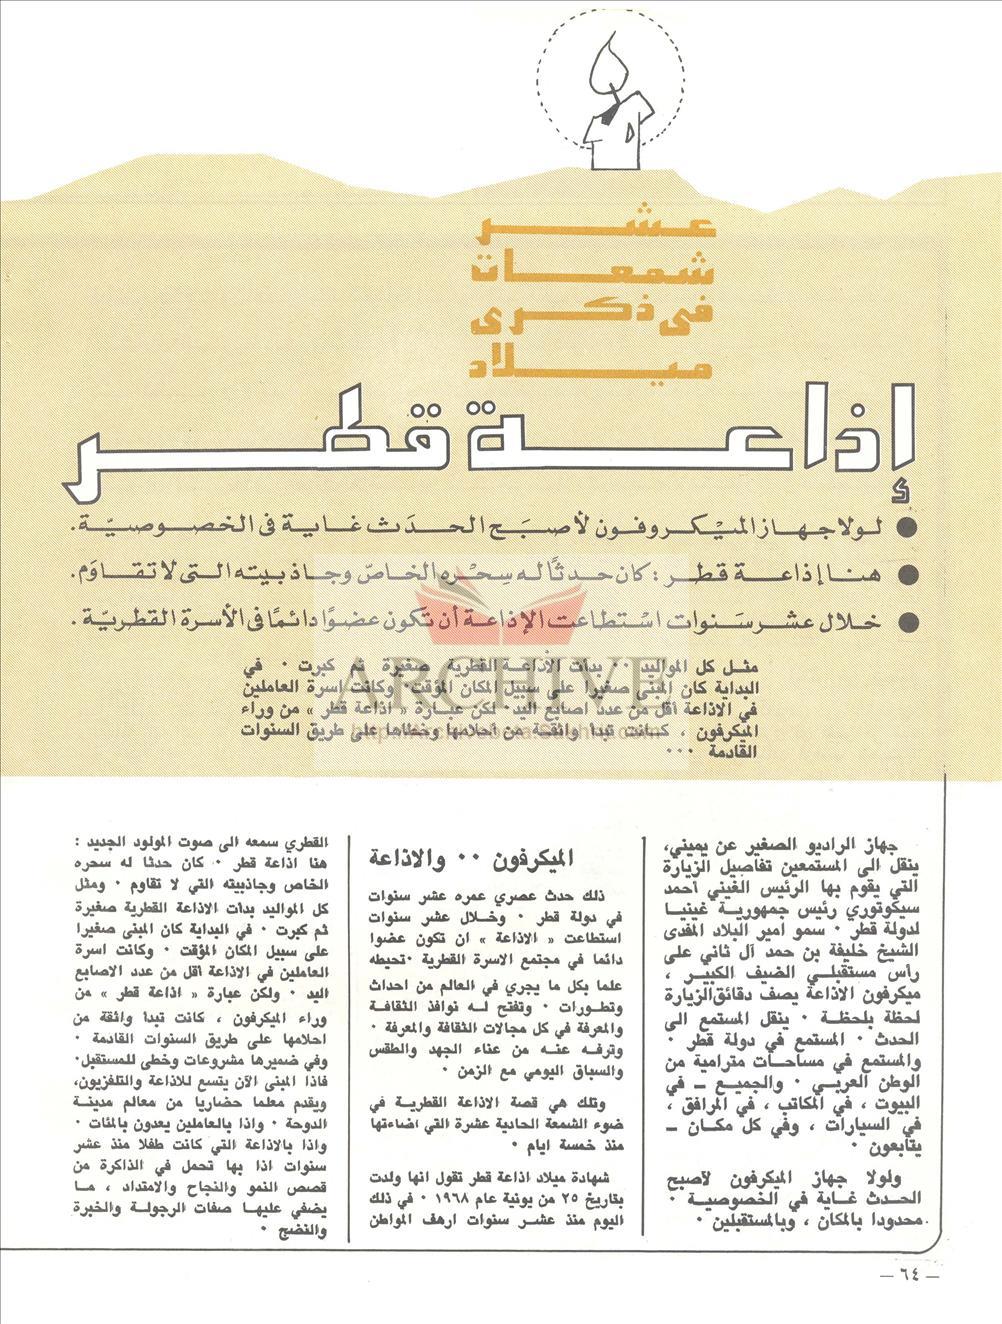 عشر
شمعات
في ذكرى
ميلاد
إذاعة قطر
● لولا جهاز الميْكروفون لأصبَح الحدَث غاية في الخصوصيّة.
● هنا إذاعة قطر : كان حدثًا له سِحْره الخاصّ وجاذبيته التى لا تقاوَم.
● خلال عشر سَنوات اسْتطاعت الإذاعة أن تكون عضوًا دائمًا في الأسرة القطريّة .
مثل كل المواليد ٠٠ بدأت الأذاعة القطرية صغيرة ثم كبرت ٠ في
البداية كان المبنى صغيرا على سبيل المكان المؤقت٠ وكانت اسرة العاملين
في الاذاعة أقل من عدد اصابع اليد٠ لكن عبارة « اذاعة قطر » من وراء
الميكرفون ، كانت تبدأ واثقة من أحلامها وخطاها على طريق السنوات
القادمة ٠٠٠
ARCHIVE
جهاز الراديو الصغير عن يميني،
ينقل الى المستمعين تفاصيل الزيارة
التي يقوم بها الرئيس الغيني أحمد
سيكوتوري رئيس جمهورية غينيا
لدولة قطر ٠ سمو امير البلاد المفدى
الشيخ خليفة بن حمد آل ثاني على
رأس مستقبلي الضيف الكبير ،
ميكرفون الاذاعة يصف دقائق الزيارة
لحظة بلحظة ٠ ينقل المستمع الى
الحدث ٠ المستمع في دولة قطر ٠
والمستمع في مساحات مترامية من
الوطن العربي ٠ والجميع ــ في
البيوت ، في المكاتب ، في المرافق ،
في السيارات ، وفي كل مكان ــ
يتابعون ٠
ولولا جهاز الميكرفون لأصبح
الحدث غاية في الخصوصية ٠
محدودا بالمكان ، وبالمستقبلين ٠
الميكرفون ٠٠ والاذاعة
ذلك حدث عصري عمره عشر سنوات
في دولة قطر ٠ وخلال عشر سنوات
استطاعت « الاذاعة » ان تكون عضوا
دائما في مجتمع الاسرة القطرية ٠تحيطه
علما بكل ما يجري في العالم من احداث
وتطورات ٠ وتفتح له نوافذ الثقافة
والمعرفة في كل مجالات الثقافة والمعرفة ٠
وترفه عنه من عناء الجهد والطقس
والسباق اليومي مع الزمن ٠
وتلك هي قصة الاذاعة القطرية في
ضوء الشمعة الحادية عشرة التي اضاءتها
منذ خمسة ايام ٠
شهادة ميلاد اذاعة قطر تقول انها ولدت
بتاريخ ٢٥ من يونية عام ١٩٦٨ ٠ في ذلك
اليوم منذ عشر سنوات ارهف المواطن
القطري سمعه الى صوت المولود الجديد :
هنا اذاعة قطر ٠ كان حدثا له سحره
الخاص وجاذبيته التي لا تقاوم ٠ ومثل
كل المواليد بدأت الاذاعة القطرية صغيرة
ثم كبرت ٠ في البداية كان المبنى صغيرا
على سبيل المكان المؤقت ٠ وكانت اسرة
العاملين في الاذاعة أقل من عدد الاصابع
اليد ٠ ولكن عبارة « اذاعة قطر » من
وراء الميكرفون ، كانت تبدأ واثقة من
احلامها على طريق السنوات القادمة ٠
وفي ضميرها مشروعات وخطى للمستقبل٠
فاذا المبنى الآن يتسع للاذاعة والتلفزيون،
ويقدم معلما حضاريا من معالم مدينة
الدوحة ٠ واذا بالعاملين يعدون بالمئات ٠
واذا بالاذاعة التي كانت طفلا منذ عشر
سنوات اذا بها تحمل في الذاكرة من
قصص النمو والنجاح والامتداد ، ما
يضفي عليها صفات الرجولة والخبرة
والنضج ٠
— ٦٤ —